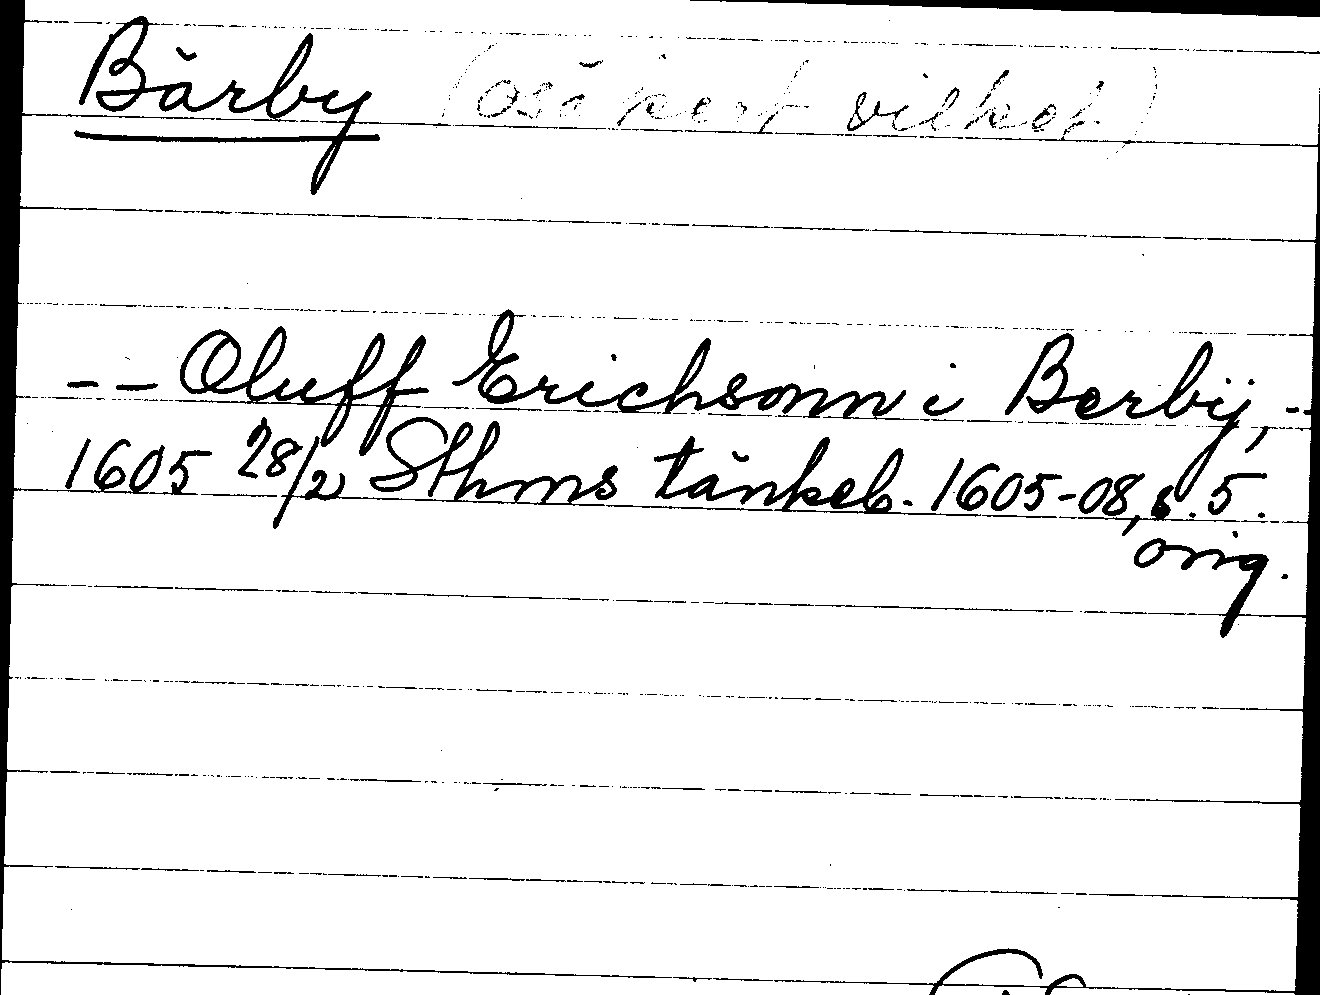 Bärby (osäkert vilket)
-- Oluff Erichsonn i Berbÿ, --
1605 28/2 Sthms tänkeb. 1605-08, s. 5.
orig.